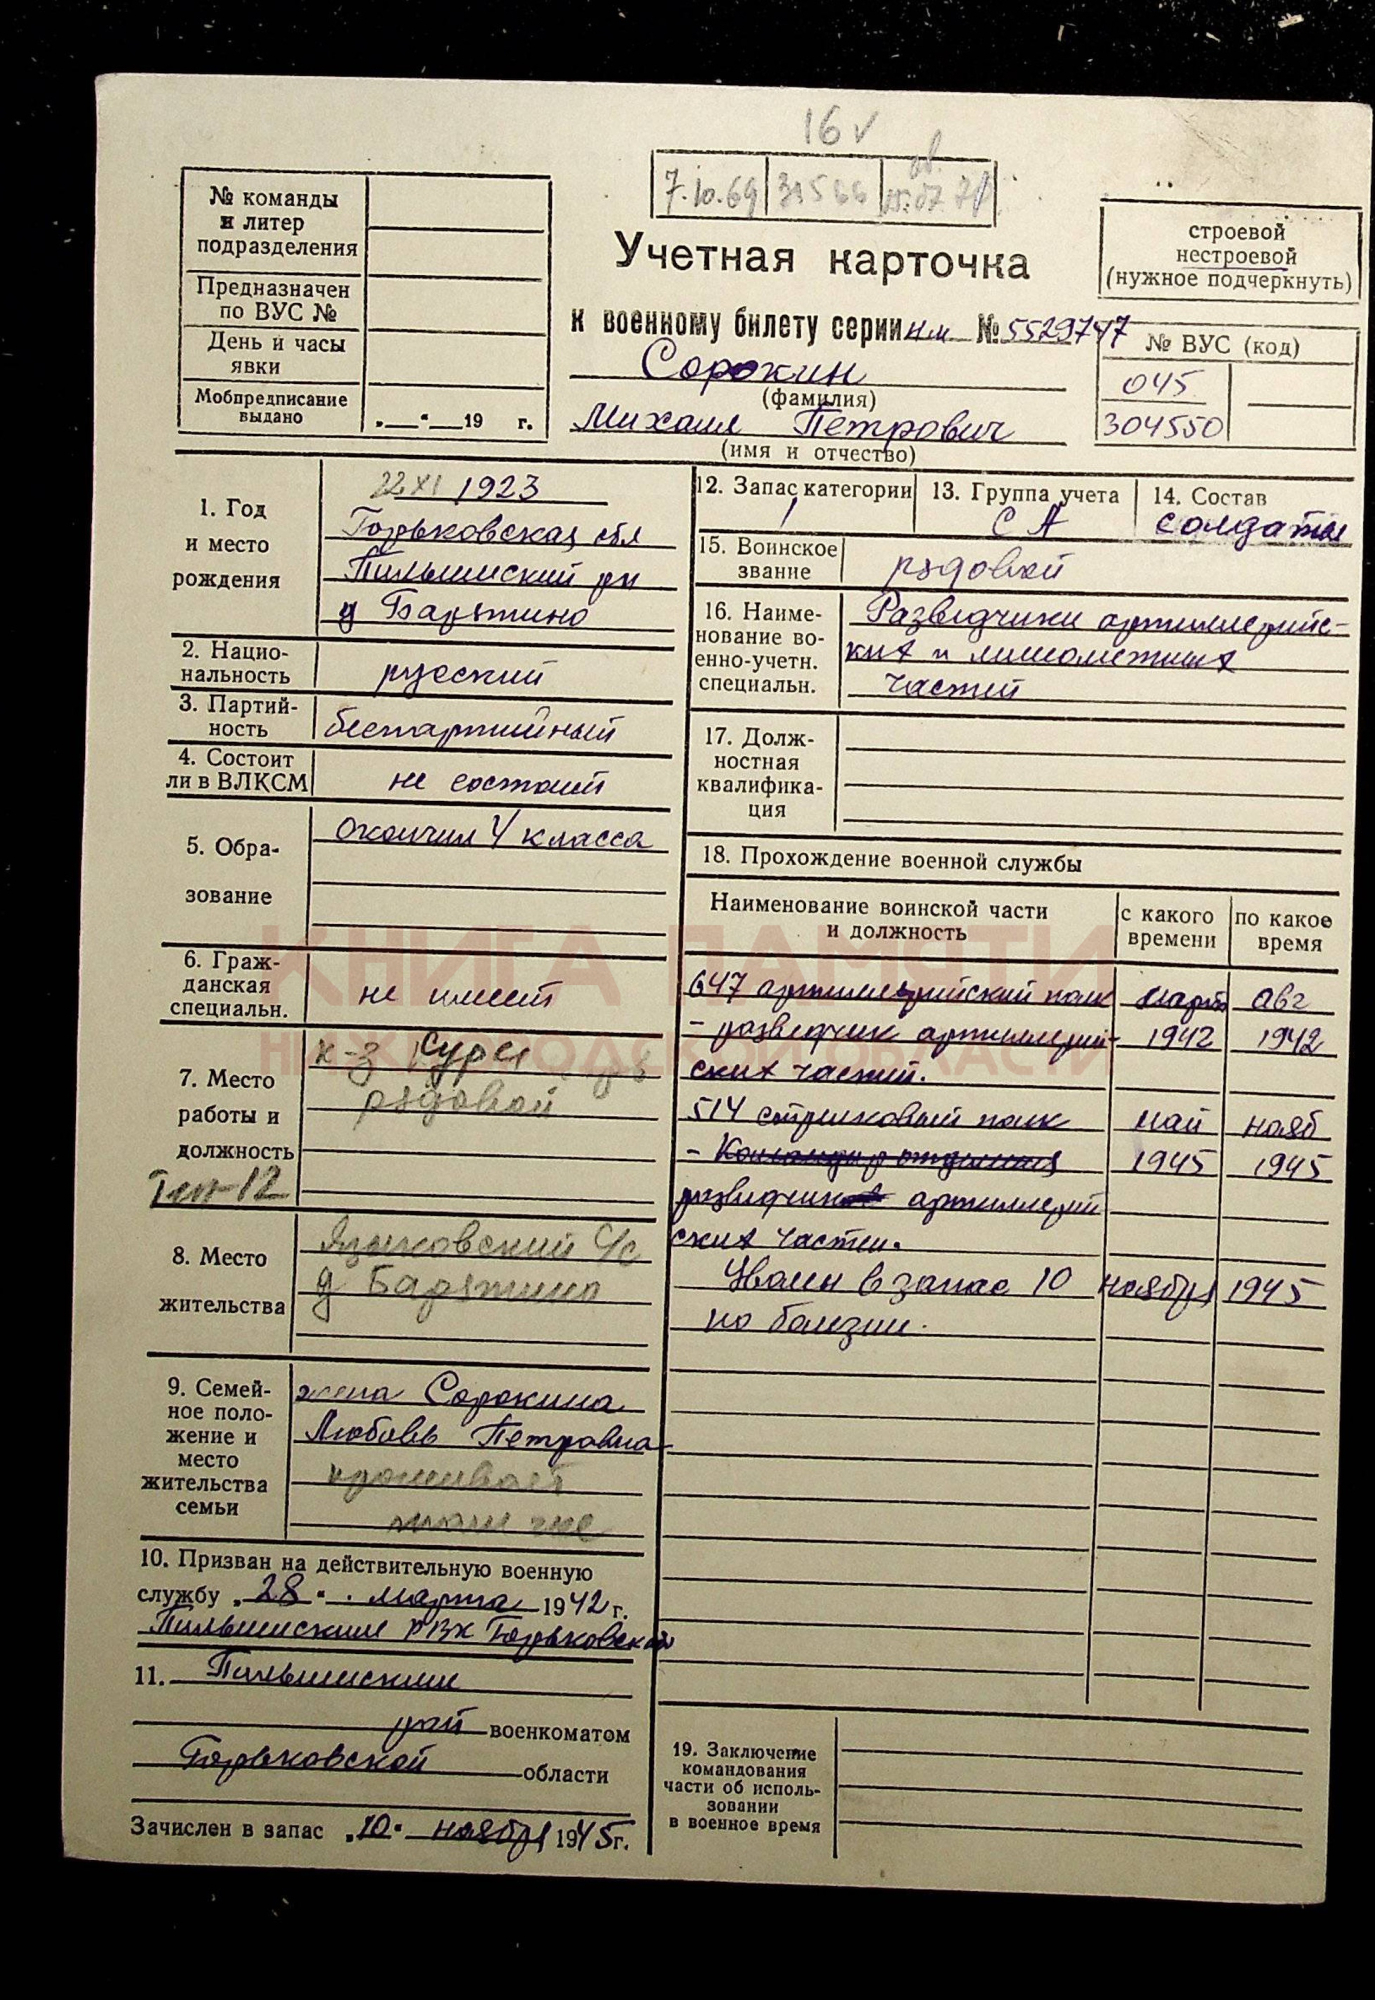 16 v
7.10.69
№ команды
и литер
подразделения
Предназначен
по ВУС №
День и часы
явки
Мобпредписание
выдано
„__“__19 г.
Учетная карточка
к военному билету серии НМ № 5529747
Сорокин
(фамилия)
Михаил Петрович
(имя и отчество)
строевой
нестроевой
(нужное подчеркнуть)
№ ВУС (код)
045
304550
1. Год
и место
рождения
22 XI 1923
Горьковская обл
Пильнинский рн
д Барятино
2. Нацио-
нальность
русский
3. Партий-
ность
беспартийный
4. Состоит
ли в ВЛКСМ
не состоит
5. Обра-
зование
Окончил 4 класса
6. Граж-
данская
специальн.
не имеет
7. Место
работы и
должность
к-з Сура
рядовой
Тел-12
8. Место
жительства
Языковский С/с
д Барятино
9. Семей-
ное поло-
жение и
место
жительства
семьи
жена Сорокина
Любовь Петровна
проживает
там же
10. Призван на действительную военную
службу „28“ марта 1942 г.
Пильнинским РВК Горьковской
11. Пильнинским
рай военкоматом
Горьковской области
Зачислен в запас „10“ ноября 1945 г.
12. Запас категории
1
13. Группа учета
СА
14. Состав
солдаты
15. Воинское
звание
рядовой
16. Наиме-
нование во-
енно-учетн.
специальн.
Разведчики артиллерийс-
ких и минометных
частей
17. Долж-
ностная
квалифика-
ция
18. Прохождение военной службы
Наименование воинской части
и должность
с какого
времени
по какое
время
647 артиллерийский полк марта авг
- разведчик артиллерий- 1942 1942
ских частей.
514 стрелковый полк май нояб
- Командир отделения 1945 1945
разведчик артиллерий
ских части.
Уволен в запас 10 ноября 1945
по болезни.
19. Заключение
командования
части об исполь-
зовании
в военное время
КНИГА ПАМЯТИ
НИЖЕГОРОДСКОЙ ОБЛАСТИ